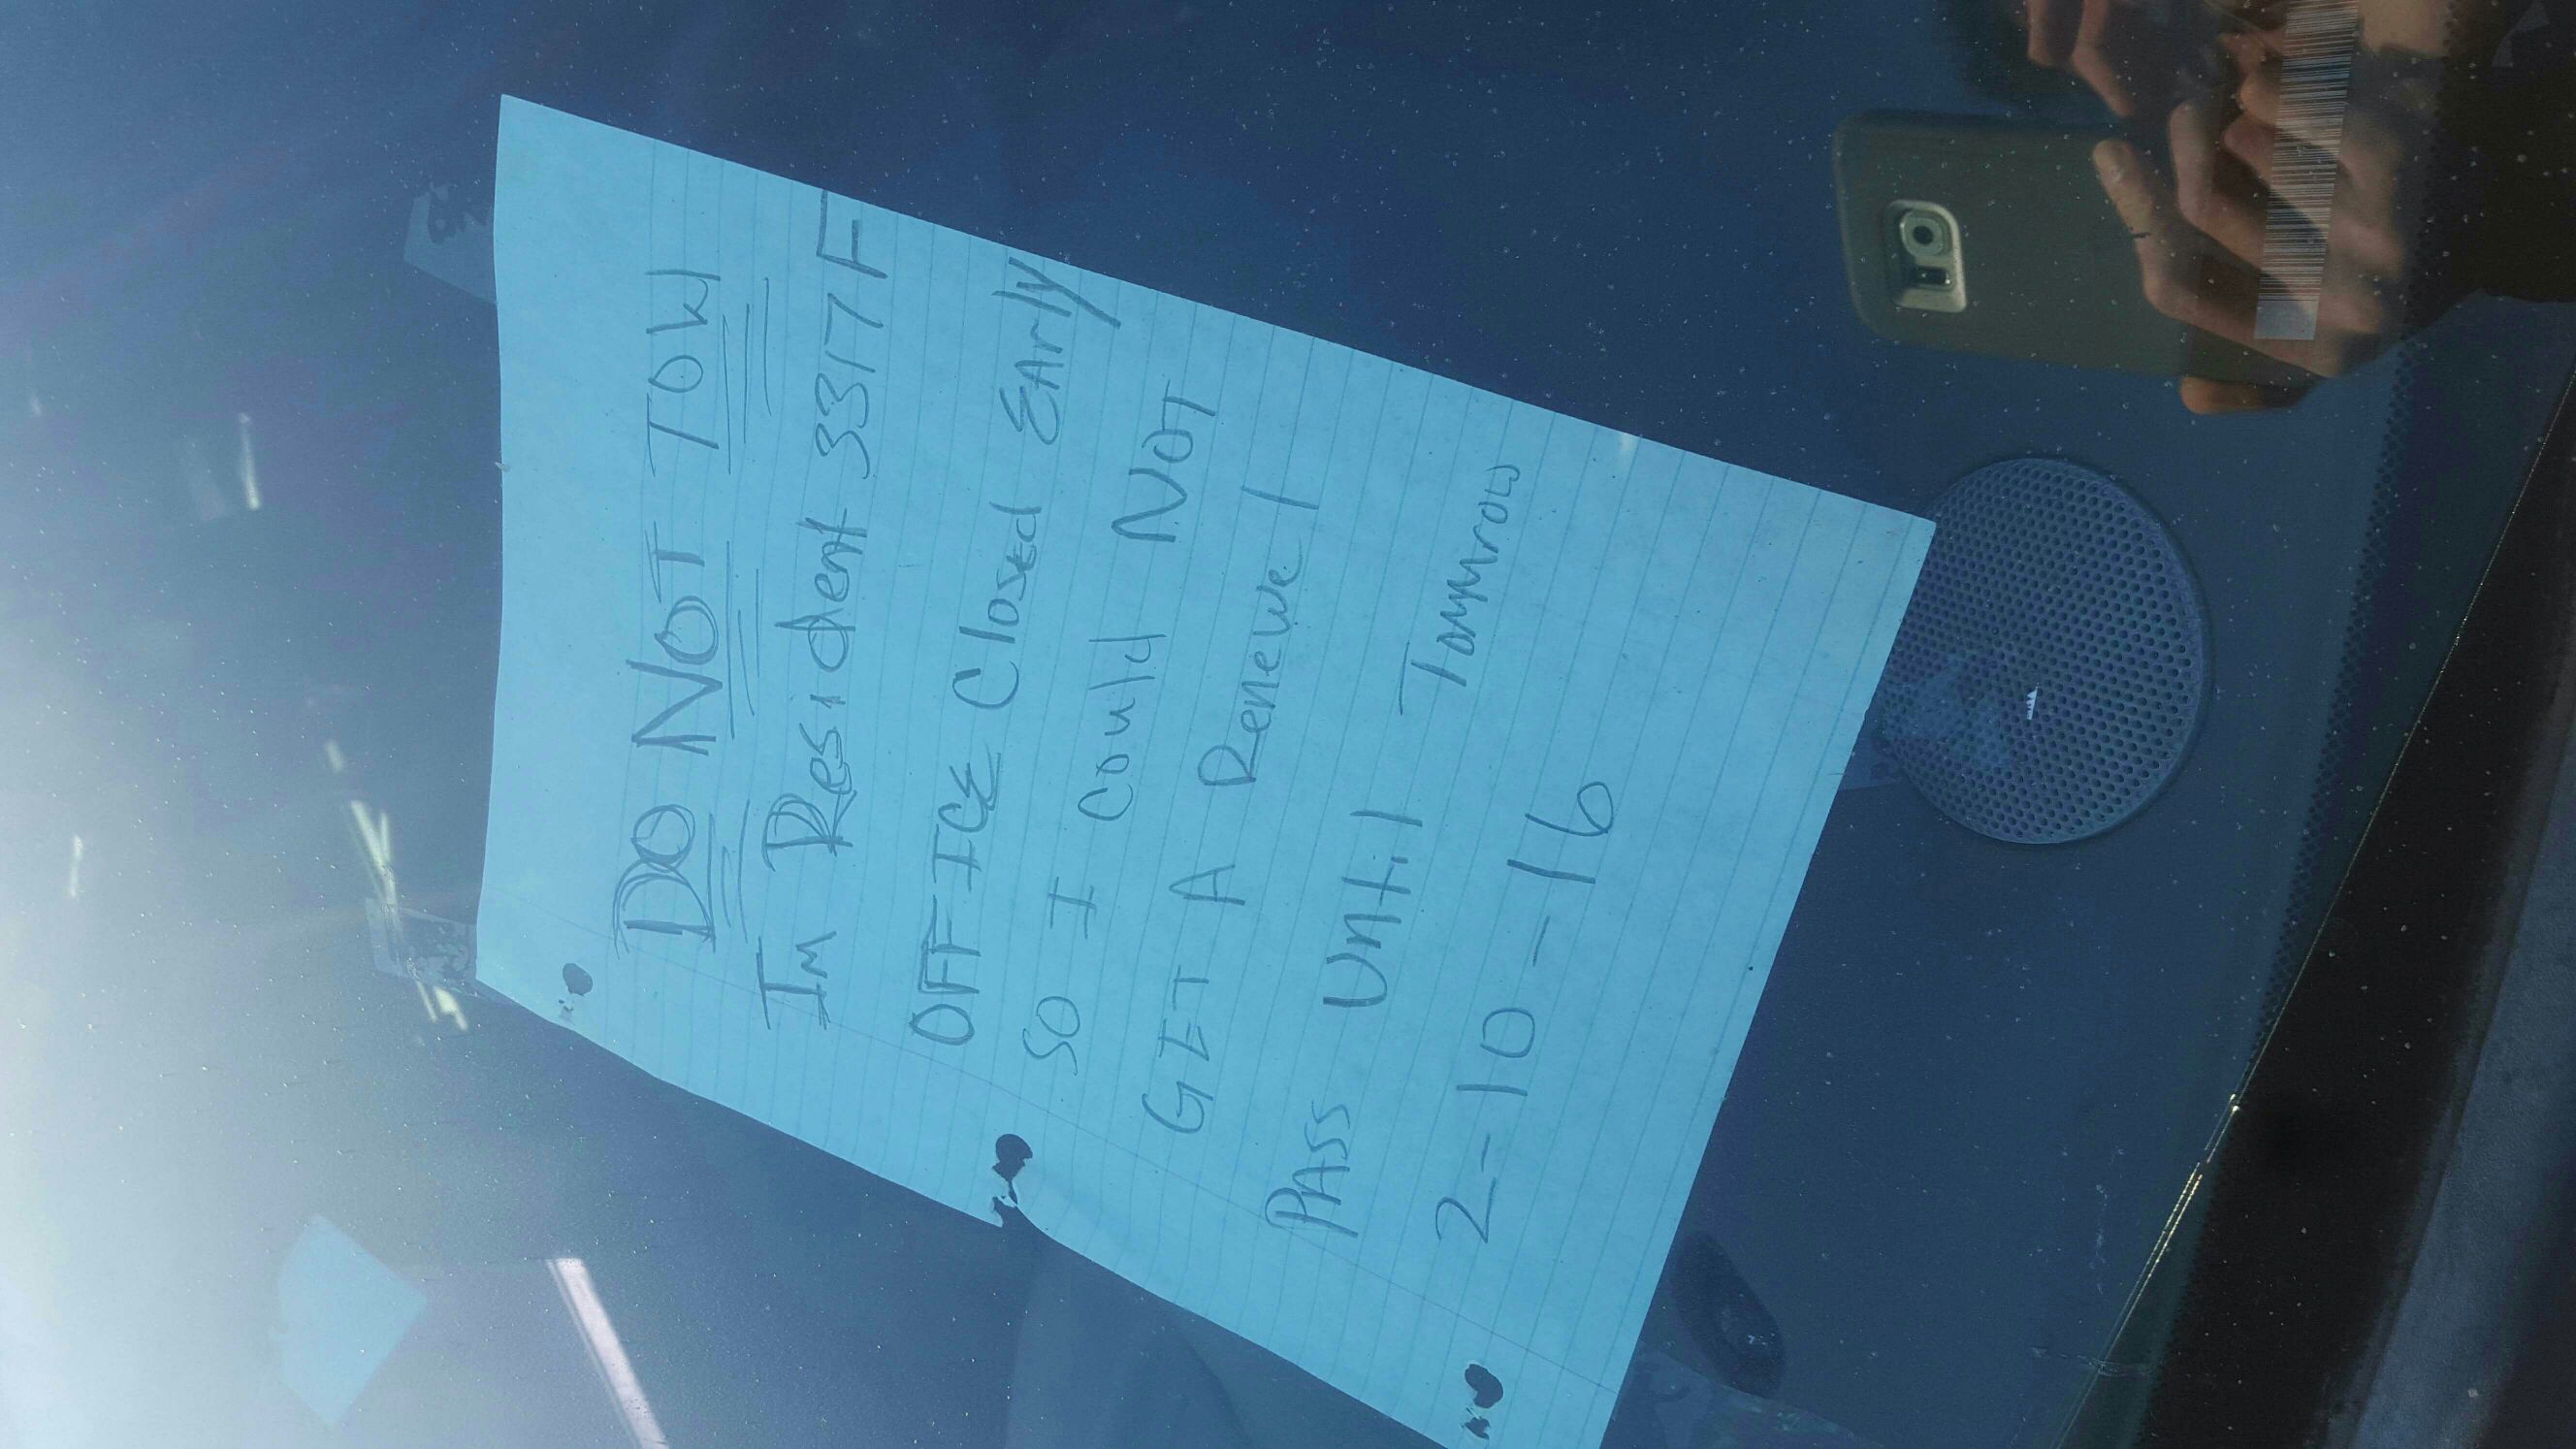 DO NOT TOW
Im Resident 3317 F
OFFICE Closed EArly
SO I Could NOT
GET A Renewel
PASS Until Tomrrow
2-10-16